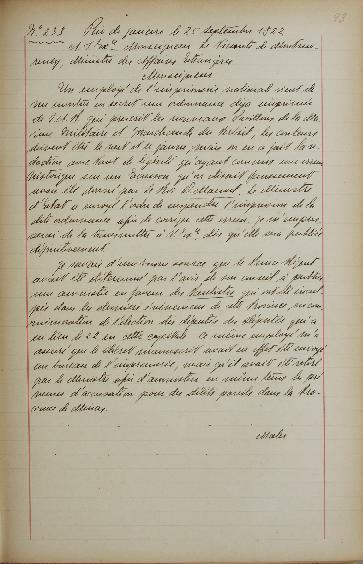 93
Nº 233 Rio de janeiro le 25 Septembre 1822
A S. Exce. Monseigneur le Vicomte de Montmo-
rency, Ministre des Affaires Etrangères
Monseigneur
Un employé de l'imprimerie national vient de
me montrer en secret une ordonnance déja imprimée
de S.A.R. qui prescrit les nouveaux Pavillons de la Ma-
rine Militaire et Marchande du Brésil, les couleurs
doivent être le vert et le jaune, mais on en a fait la ré-
daction avec tant de légèreté qu'ayant commis une erreur
historique sur un écusson qu'on disait faussement
avoir été donné par le Roi D. Manuel, le Ministre
d'état a envoyé l'ordre de suspendre l'impression de la
dite ordonnance afin de corriger cette erreur, je m'empres-
serai de la transmettre à V. Exce. dès qu'elle sera publiée
définitivement
Je savais d'une bonne source que le Prince Régent
avait été déterminé par l'avis de son conseil à publier
une amnistie en faveur des
dans les derniers évènements de cette Province, en com-
mémoration de l'élection des députés qui a
eu lieu le 22 en cette capitale. Ce même employé m'a
assuré que le décret avait en effet été envoyé
au bureau de l'imprimerie, mais qu'il avait été retiré
par le Ministre afin d'amnistier en même tems les pré-
venus d'accusation pour des délits pareils dans la Pro-
vince de Minas.
Maler